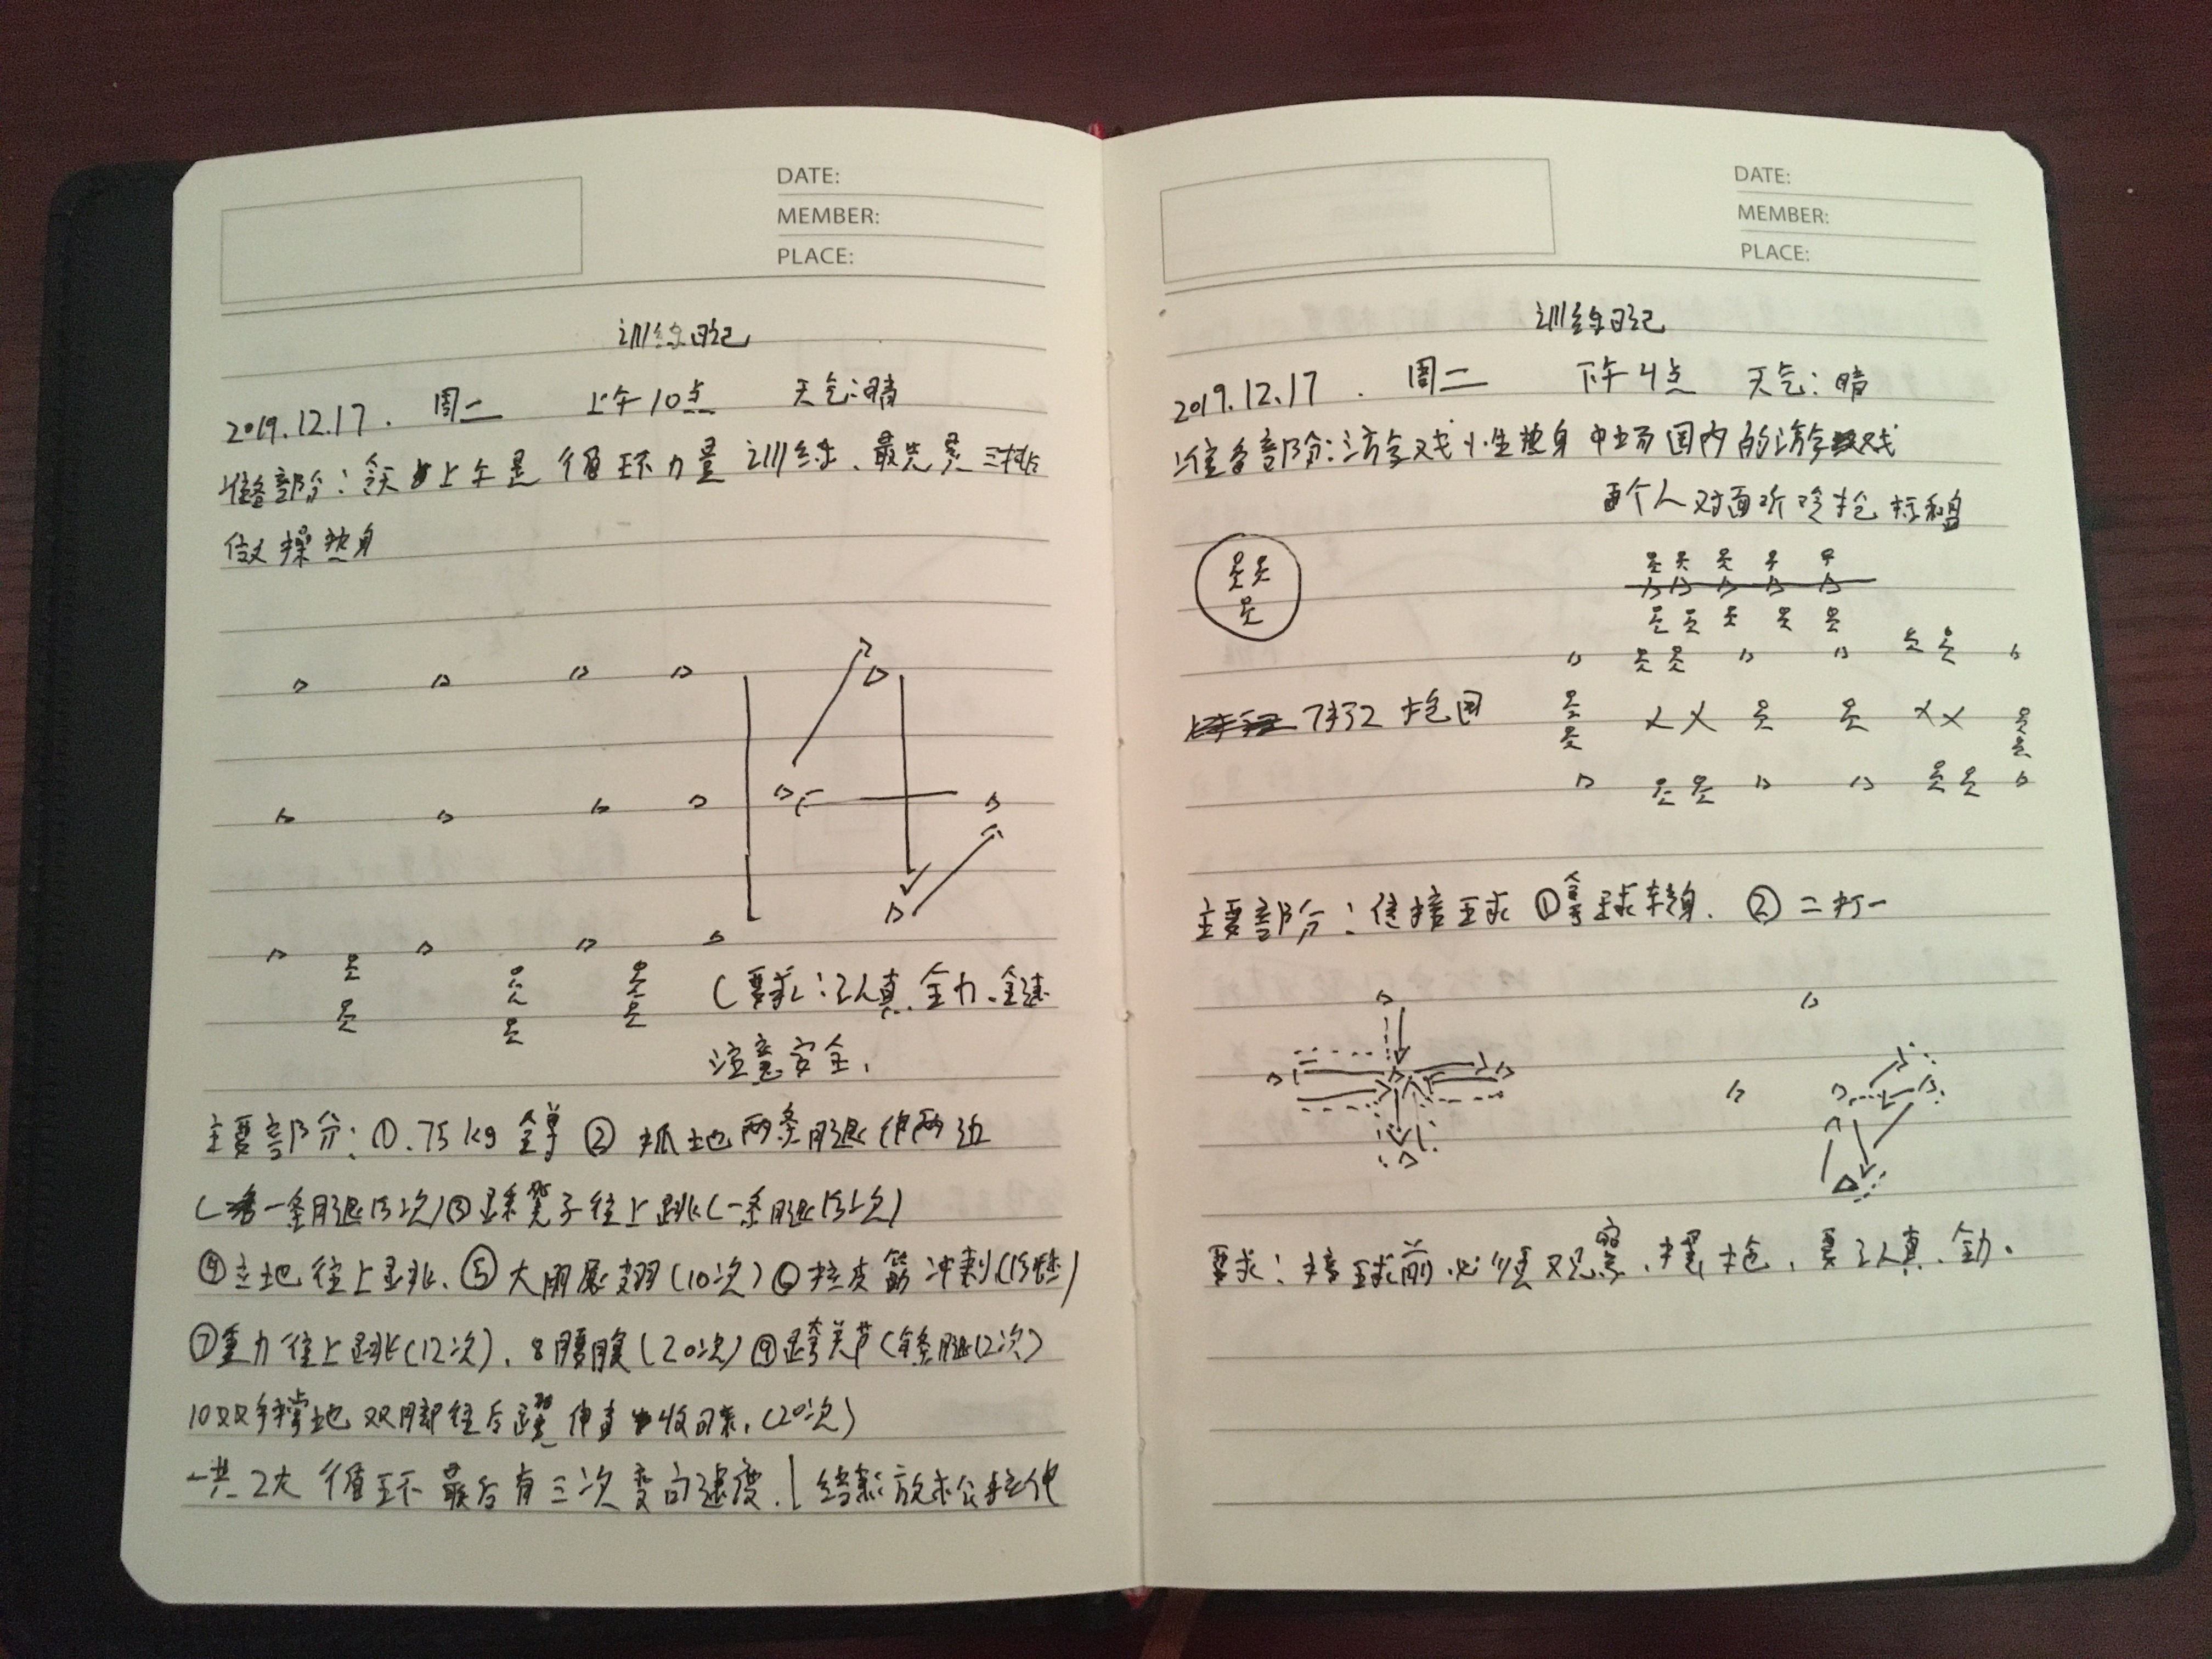 DATE:
MEMBER:
PLACE:
训练日记
2019.12.17. 周二 上午10点 天气:晴
准备部分:今天上午是循环力量训练、最先是三排
做操热身
(要求:认真、全力、全速
注意安全.
主要部分:①.75kg全蹲 ② 抓地两条腿伸两边
(一条腿15次)③踩凳子往上跳(一条腿15次)
④立地往上跳、⑤大鹏展翅(10次)⑥拉皮筋冲刺(15)
⑦重力往上跳(12次)、8腰腹(20次)⑨跨(条腿12次)
10双手撑地双脚往后 伸直收回来,(20次)
一共2大循环最后有三次变向速度. 结束放松拉伸
DATE:
MEMBER:
PLACE:
训练日记
2019.12.17. 周二 下午4点 天气:晴
准备部分:游戏性热身 中场圈内的游戏
两个人对面听口令抢标
7抢圈
主要部分:传接球 ①拿球转身. ②二打一
要求:接球前必须观察、摆、要认真、全力.